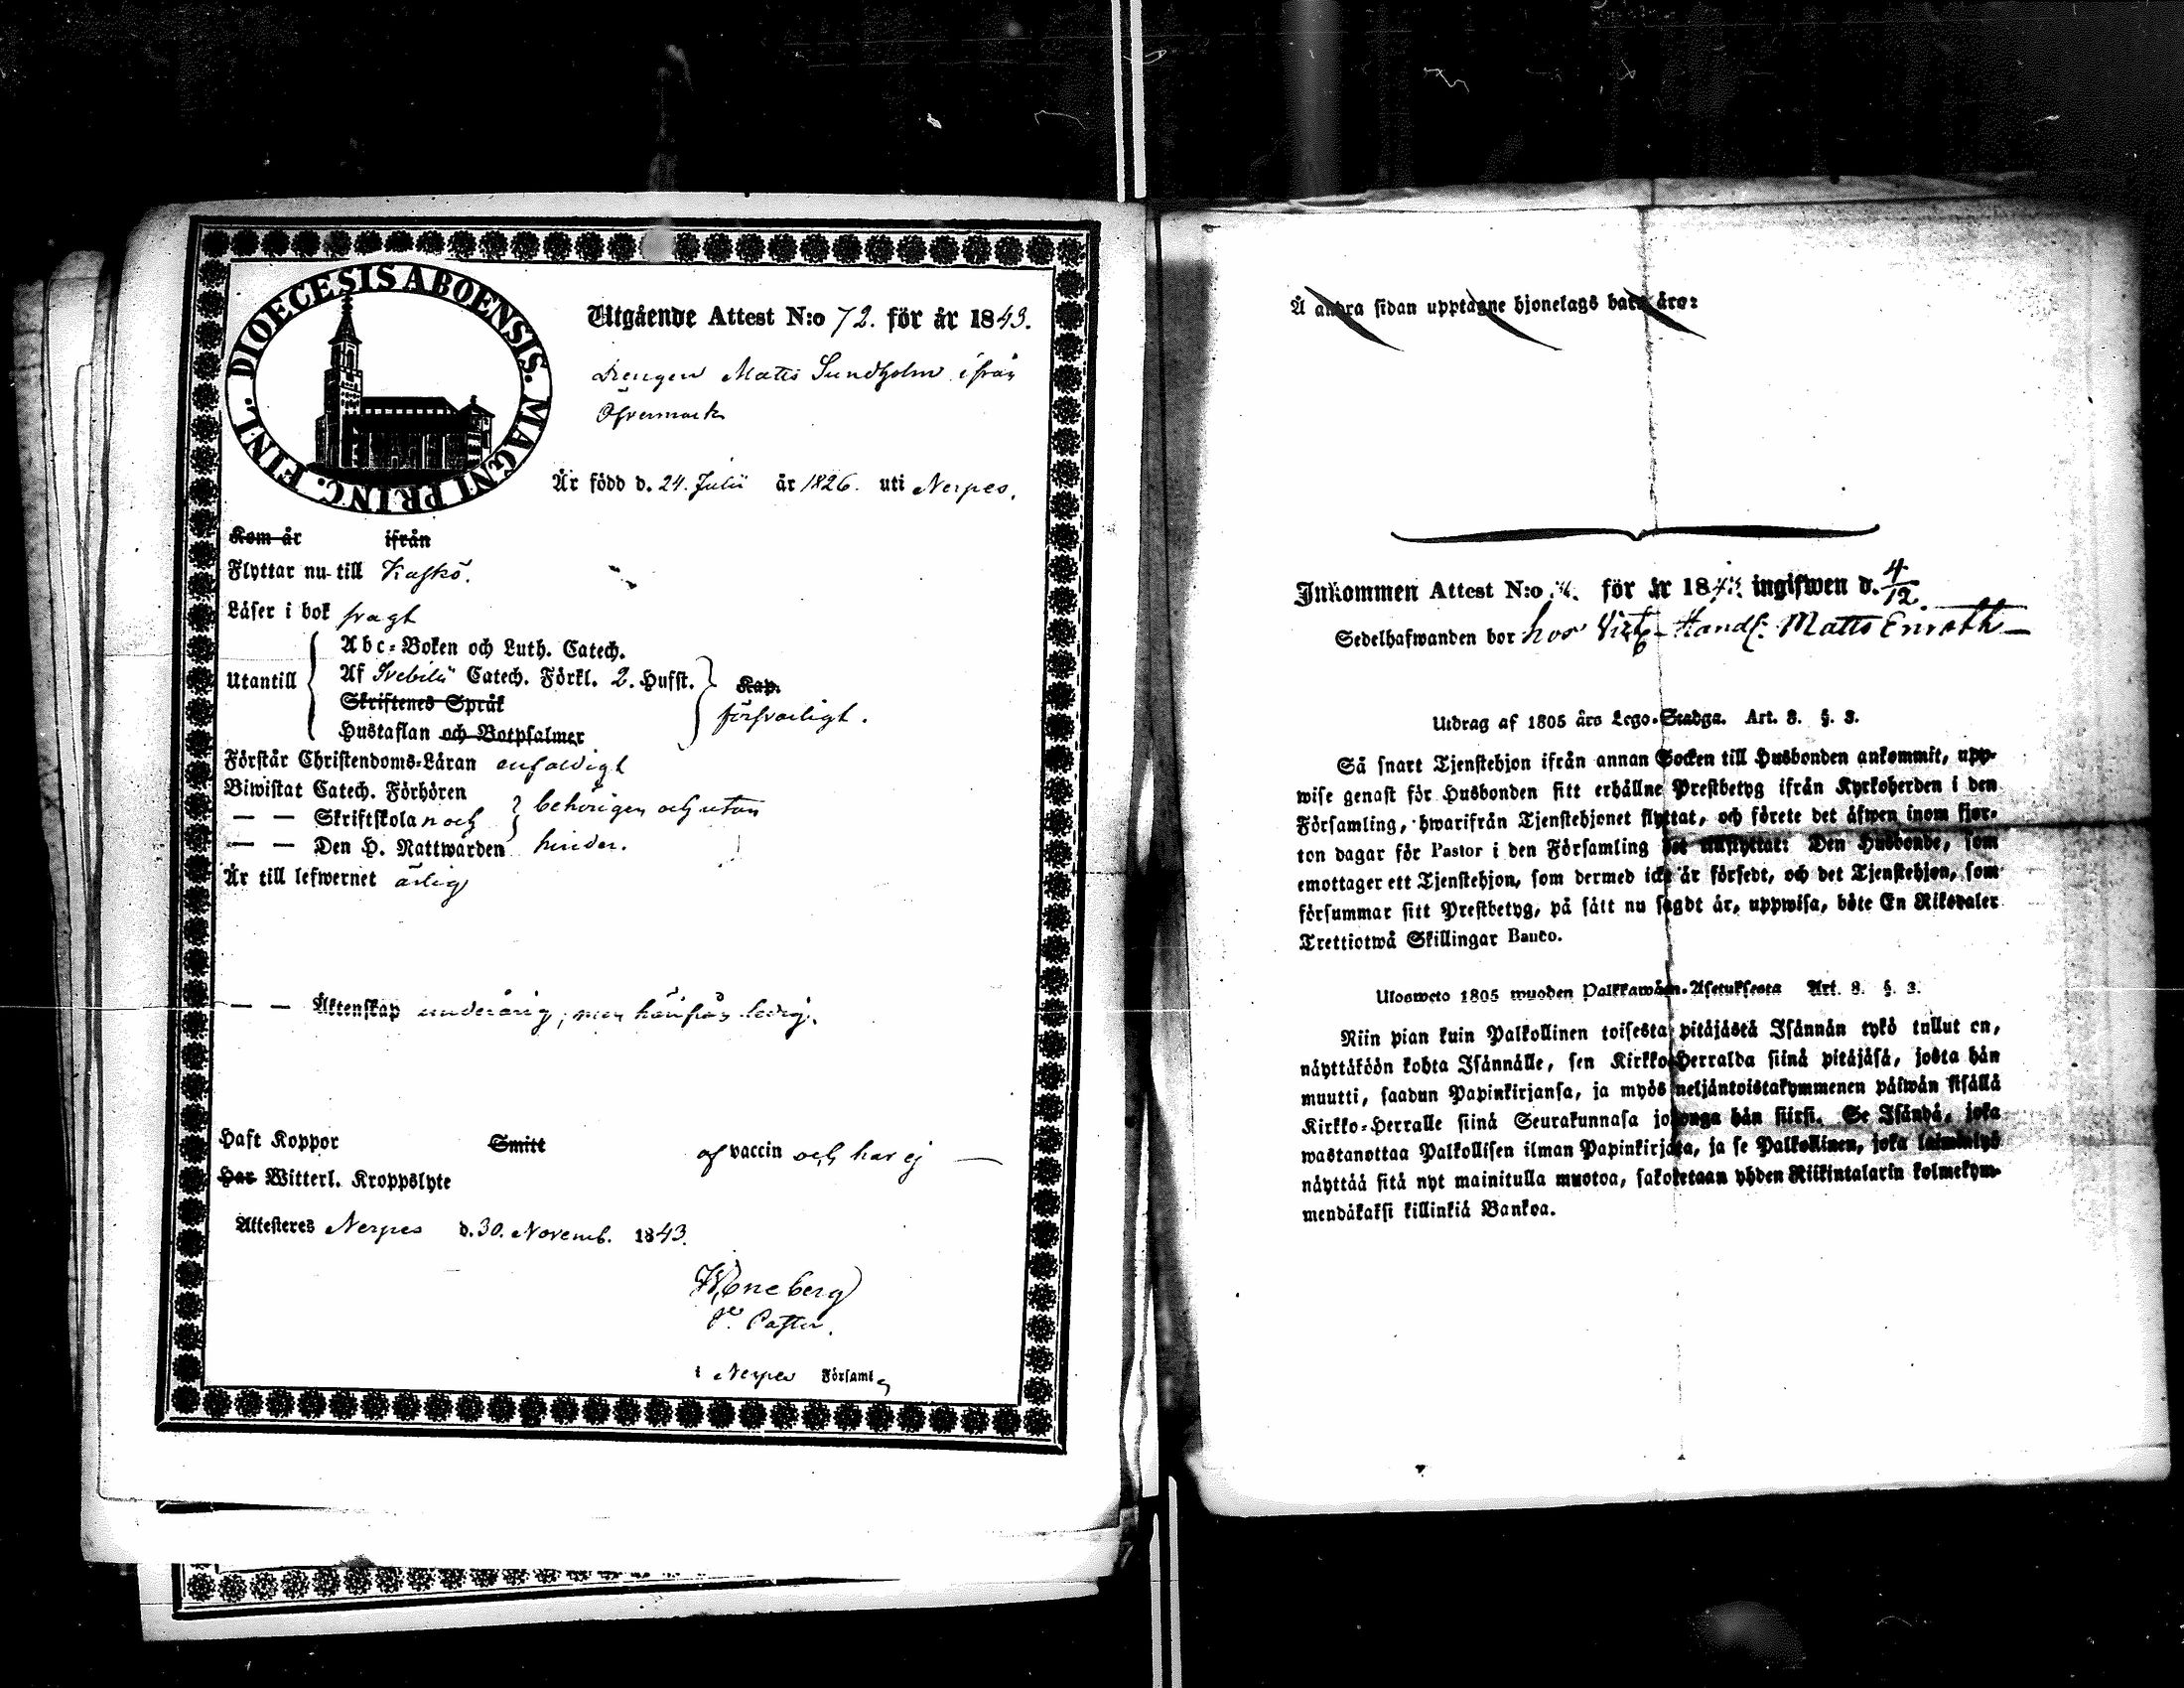 DIOECESIS ABOENSIS. MAGNI PRINC. FINL.
Utgående Attest N:o 72. för år 1843.
Drengen Matts Sundholm ifrån
Öfvermark
Är född d. 24. Julii år 1826. uti Nerpes.
Kom år ifrån
Flyttar nu till Kaskö.
Läser i bok svagt
Abc-Boken och Luth. Catech.
Utantill Af Svebilii Catech. Förkl. 2. Hufst. Kap.
Skriftenes Språk försvarligt.
Hustaflan och Botpsalmer
Förstår Christendoms-Läran enfaldigt
Biwistat Catech. Förhören
— — Skriftskolan och behörigen och utan
— — Den H. Nattwarden hinder.
Är till lefwernet ärlig
— — Äktenskap underårig, men härifrån ledig.
Haft Koppor Smitt af vaccin och har ej —
Har Witterl. Kroppslyte
Attesteres Nerpes d. 30. Novemb. 1843.
Pastor.
i Nerpes Församl
Å andra sidan upptagne hjonelags barn äro:
Inkommen Attest N:o för år 1843. ingifwen d. 4/12.
Sedelhafwanden bor hos Handl. Matts Enroth —
Utdrag af 1805 års Lego-Stadga. Art. 8. §. 3.
Så snart Tjenstehjon ifrån annan Socken till Husbonden ankommit, upp-
wise genast för Husbonden sitt erhållne Prestbetyg ifrån Kyrkoherden i den
Församling, hwarifrån Tjenstehjonet flyttat, och förete det äfwen inom fjor-
ton dagar för Pastor i den Församling det inflyttat: Den Husbonde, som
emottager ett Tjenstehjon, som dermed icke är försedt, och det Tjenstehjon, som
försummar sitt Prestbetyg, på sätt nu sagdt är, uppwisa, böte En Riksdaler
Trettiotwå Skillingar Banco.
Ulosweto 1805 wuoden Palkkawäen-Asetuksesta Art. 8. §. 3.
Niin pian kuin Palkollinen toisesta pitäjästä Isännän tykö tullut on,
näyttäköön kohta Isännälle, sen Kirkko-Herralda siinä pitäjäsä, josta hän
muutti, saadun Papinkirjansa, ja myös neljäntoistakymmenen päiwän sisällä
Kirkko-Herralle siinä Seurakunnasa johonga hän siirsi. Se Isändä, joka
wastanottaa Palkollisen ilman Papinkirjata, ja se Palkollinen, joka laiminlyö
näyttää sitä nyt mainitulla muotoa, sakotetaan yhden Riikintalarin kolmekym-
mendäkaksi killinkiä Bankoa.